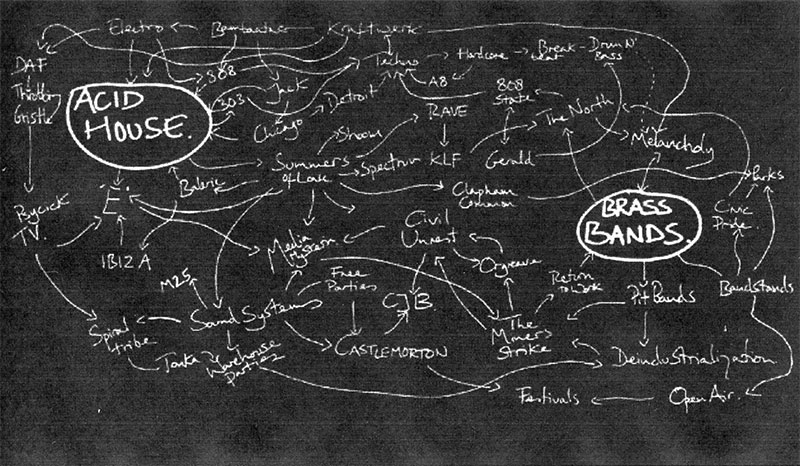 Electro
Bambaataa
Kraftwerk
DAF
808
Techno
Hardcore
Break-
beat
Drum N'
Bass
Throbbing
Gristle
ACID
HOUSE.
303
Jack
Detroit
A8
808
State
Chicago
Shoom
RAVE
The North
Melancholy
Summers
of Love
Spectrum
KLF
Gerald
Parks
Balearic
Clapham
Common
'E'.
BRASS
BANDS.
Civic
Pride.
TV.
IBIZA
Media
Hysteria
Civil
Unrest
Orgreave
M25
Free
Parties
Return
to Work
Pit Bands
Bandstands
CJB.
Spiral
tribe
Sound Systems
CASTLEMORTON
The
Miners
Strike
Deindustrialization
Tonka
Warehouse
Parties
Festivals
Open Air.